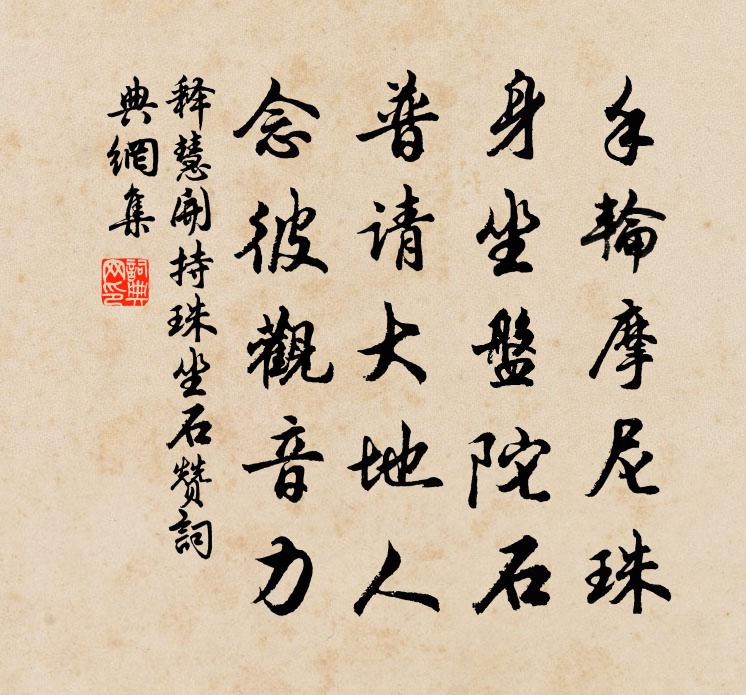 手輪摩尼珠
身坐盤陀石
普请大地人
念彼觀音力
释慧開持珠坐石赞詞
典網集
詞典
网印